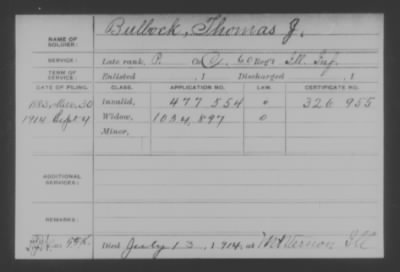 NAME OF SOLDIER: Bullock, Thomas J.
SERVICE: Late rank, P. Co. C, 60 Reg't Ill. Inf.
TERM OF SERVICE: Enlisted , 1 Discharged , 1
DATE OF FILING. CLASS. APPLICATION NO. LAW. CERTIFICATE NO.
1883, 30 Invalid, 477 554 o 326 955
1914 Sept 4 Widow, 1034,897 o
Minor,
ADDITIONAL SERVICES:
REMARKS:
Died July 13, 1914, at Mt Vernon Ill